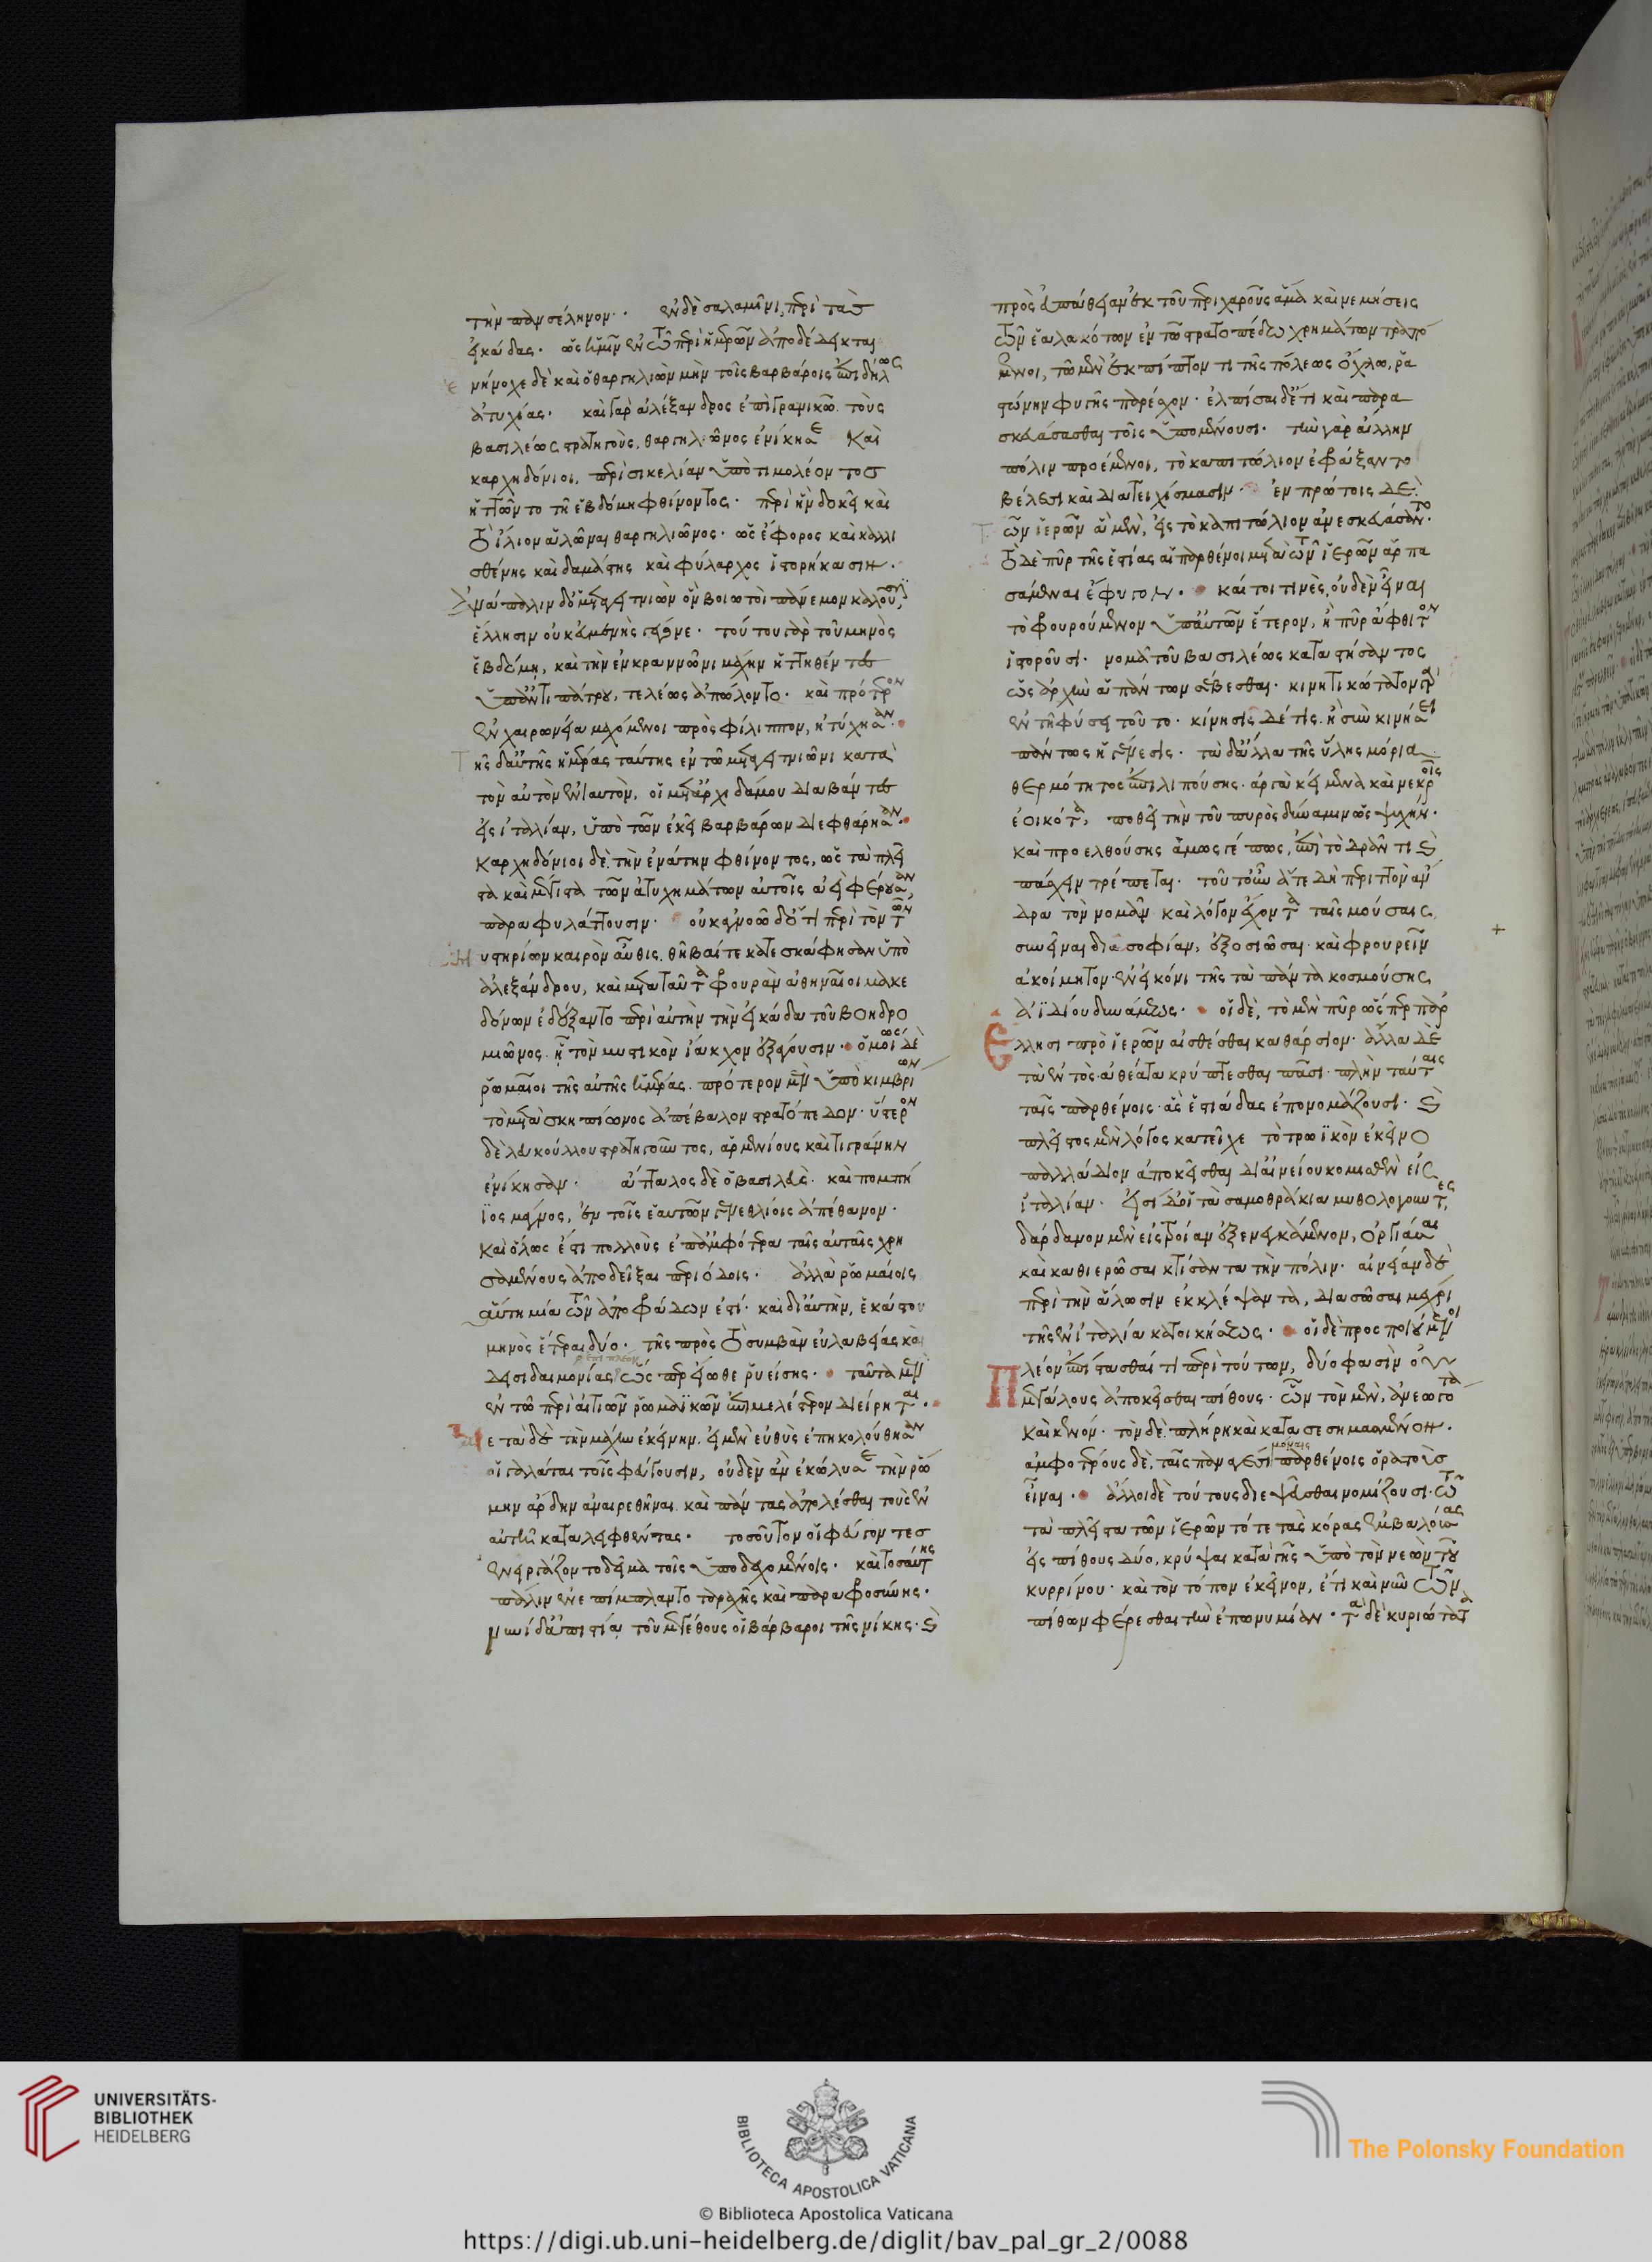 τὴν πανσέληνον· ἐν δὲ σαλαμῖνι, περὶ τὰς
εἰκάδας· ὡς ἡμῖν ἐν τῶ περὶ ἡμερῶν ἀποδέδεικται
ἐνήνοχε δὲ καὶ ὁ θαργηλιὼν μὴν τοῖς βαρβάροις ἐπιδήλως
ἀτυχίας· καὶ γὰρ ἀλέξανδρος ἐπὶ γρανικῶ τοὺς
βασιλέως στρατηγοὺς, θαργηλιῶνος ἐνίκησε καὶ
καρχηδόνιοι, περὶ σικελίαν ὑπὸ τιμολέοντος
ἡττῶντο τῆ ἑβδόμη φθίνοντος· περὶ ἣν δοκεῖ καὶ
τὸ ἴλιον ἁλῶναι θαργηλιῶνος· ὡς ἔφορος καὶ καλλι
σθένης καὶ δαμάστης καὶ φύλαρχος ἱστορήκασιν·
ἀνάπαλιν δ' ὁ μεταγειτνιὼν ὃν βοιωτοὶ πάνεμον καλοῦσιν,
ἕλλησιν οὐκ εὐμενὴς γέγονε· τούτου γὰρ τοῦ μηνὸς
ἑβδόμη, καὶ τὴν ἐν κραννῶνι μάχην ἡττηθέντες
ὑπ' ἀντιπάτρου, τελέως ἀπώλοντο· καὶ πρότερον
ἐν χαιρωνεία μαχόμενοι πρὸς φίλιππον, ἠτύχησαν·
τῆς δ' αὐτῆς ἡμέρας ταύτης ἐν τῶ μεταγειτνιῶνι κατὰ
τὸν αὐτὸν ἐνιαυτὸν, οἱ μετ' ἀρχιδάμου διαβάντες
εἰς ἰταλίαν, ὑπὸ τῶν ἐκεῖ βαρβάρων διεφθάρησαν·
καρχηδόνιοι δὲ τὴν ἐνάτην φθίνοντος, ὡς τὰ πλεῖ
στα καὶ μέγιστα τῶν ἀτυχημάτων αὐτοῖς ἀεὶ φέρουσαν,
παραφυλάττουσιν· οὐκ ἀγνοῶ δ' ὅτι περὶ τὸν τῶν
μυστηρίων καιρὸν αὖθις θῆβαί τε κατεσκάφησαν ὑπὸ
ἀλεξάνδρου, καὶ μετὰ ταῦτα φρουρὰν ἀθηναῖοι μακε
δόνων ἐδέξαντο περὶ αὐτὴν τὴν εἰκάδα τοῦ βοηδρο
μιῶνος ἧ τὸν μυστικὸν ἴακχον ἐξάγουσιν· ὁμοίως δὲ
ῥωμαῖοι τῆς αὐτῆς ἡμέρας πρότερον μὲν ὑπὸ κίμβρων
τὸ μετὰ σκηπίωνος ἀπέβαλον στρατόπεδον· ὕστερον
δὲ λευκούλλου στρατηγοῦντος, ἀρμενίους καὶ τιγράνην
ἐνίκησαν· ἄτταλος δὲ ὁ βασιλεὺς καὶ πομπή
ϊος μάγνος, ἐν τοῖς ἑαυτῶν γενεθλίοις ἀπέθανον·
καὶ ὅλως ἔστι πολλοὺς ἐπ' ἀμφότερα ταῖς αὐταῖς χρη
σαμένους ἀποδεῖξαι περιόδοις· ἀλλὰ ῥωμαίοις
αὕτη μία τῶν ἀποφράδων ἐστί· καὶ δι' αὐτὴν, ἑκάστου
μηνὸς ἕτεραι δύο· τῆς πρὸς τὸ συμβὰν εὐλαβείας καὶ
ἐπὶ πλέον
δεισιδαιμονίας ὡς περ εἴωθε ῥυείσης· ταῦτα μὲν
ἐν τῶ περὶ αἰτιῶν ῥωμαϊκῶν ἐπιμελέστερον διείρηται·
μετὰ δὲ τὴν μάχην ἐκείνην εἰ μὲν εὐθὺς ἐπηκολούθησαν
οἱ γαλάται τοῖς φεύγουσιν, οὐδὲν ἂν ἐκώλυσε τὴν ῥώ
μην ἄρδην ἀναιρεθῆναι καὶ πάντας ἀπολέσθαι τοὺς ἐν
αὐτῆ καταλειφθέντας· τοσοῦτον οἱ φεύγοντες
ἐνειργάζοντο δεῖμα τοῖς ὑποδεχομένοις· καὶ τοσαύτης
πάλιν ἐνεπίμπλαντο ταραχῆς καὶ παραφροσύνης·
νυνὶ δ' ἀπιστία τοῦ μεγέθους οἱ βάρβαροι τῆς νίκης· καὶ
πρὸς εὐπάθειαν ἐκ τοῦ περιχαροῦς ἅμα καὶ νεμήσεις
τῶν ἑαλωκότων ἐν τῶ στρατοπέδω χρημάτων τραπό
μενοι, τῶ μὲν ἐκπίπτοντι τῆς πόλεως ὄχλω, ῥα
στώνην φυγῆς παρέσχον· ἐλπίσαι δ' ἔτι καὶ παρα
σκευάσασθαι τοῖς ὑπομένουσι· τὴν γὰρ ἄλλην
πόλιν προέμενοι, τὸ καπιτώλιον ἐφράξαντο
βέλεσι καὶ διατειχίσμασιν· ἐν πρώτοις δὲ
τῶν ἱερῶν ἃ μὲν, εἰς τὸ καπιτώλιον ἀνεσκευάσαντο·
τὸ δὲ πῦρ τῆς ἑστίας αἱ παρθένοι μετὰ τῶν ἱερῶν ἁρπα
σάμεναι ἔφυγον· καίτοι τινὲς, οὐδὲν εἶναι
τὸ φρουρούμενον ὑπ' αὐτῶν ἕτερον, ἢ πῦρ ἄφθιτον
ἱστοροῦσι· νομᾶ τοῦ βασιλέως καταστήσαντος
ὡς ἀρχὴν ἁπάντων σέβεσθαι· κινητικώτατον γὰρ
ἐν τῆ φύσει τοῦτο· κίνησις δέ τις ἢ σὺν κινήσει
πάντως ἡ γένεσις· τὰ δ' ἄλλα τῆς ὕλης μόρια
θερμότητος ἐπιλιπούσης· ἀργὰ κείμενα καὶ νεκροῖς
ἐοικότα, ποθεῖ τὴν τοῦ πυρὸς δύναμιν ὡς ψυχήν·
καὶ προελθούσης ἁμωσγέπως, ἐπὶ τὸ δρᾶν τι καὶ
πάσχειν τρέπεται· τοῦτ' οὖν ἅτε δὴ περιττὸν ἄν
δρα τὸν νομᾶν καὶ λόγον ἔχοντα ταῖς μούσαις
συνεῖναι διὰ σοφίαν, ἐξοσιῶσαι καὶ φρουρεῖν
ἀκοίμητον ἐν εἰκόνι τῆς τὰ πάντα κοσμούσης
ἀϊδίου δυνάμεως· οἱ δὲ, τὸ μὲν πῦρ ὥσπερ παρ'
ἕλλησι πρὸ ἱερῶν αἰσθέσθαι καθάρσιον· ἄλλα δὲ
τὰ ἐντὸς ἀθέατα κρύπτεσθαι πᾶσι πλὴν ταύταις
ταῖς παρθένοις· ἃς ἑστιάδας ἐπονομάζουσι· καὶ
πλεῖστος μὲν λόγος κατεῖχε τὸ τρωϊκὸν ἐκεῖνο
παλλάδιον ἀποκεῖσθαι δι' αἰνείου κομισθὲν εἰς
ἰταλίαν· εἰσὶ δ' οἱ τὰ σαμοθράκια μυθολογοῦντες,
δάρδανον μὲν εἰς τροίαν ἐξενεγκάμενον, ὀργιάσαι
καὶ καθιερῶσαι κτίσαντα τὴν πόλιν· αἰνείαν δὲ
περὶ τὴν ἅλωσιν ἐκκλέψαντα, διασῶσαι μέχρι
τῆς ἐν ἰταλία κατοικήσεως· οἱ δὲ προσποιούμενοι
πλέον ἐπίστασθαί τι περὶ τούτων, δύο φασὶν οὐ
μεγάλους ἀποκεῖσθαι πίθους· ὧν τὸν μὲν, ἀνεωγότα
καὶ κενόν· τὸν δὲ πλήρη καὶ κατασεσημασμένον·
μόναις
ἀμφοτέρους δὲ, ταῖς παναγέσι παρθένοις ὁρατοὺς
εἶναι· ἄλλοι δὲ τούτους διεψεῦσθαι νομίζουσι· τῶ
τὰ πλεῖστα τῶν ἱερῶν τότε τὰς κόρας ἐμβαλούσας
εἰς πίθους δύο, κρύψαι κατὰ γῆς ὑπὸ τὸν νεὼν τοῦ
κυρρίνου· καὶ τὸν τόπον ἐκεῖνον, ἔτι καὶ νῦν τῶν
πίθων φέρεσθαι τὴν ἐπωνυμίαν· τὰ δὲ κυριώτατα
UNIVERSITÄTS-
BIBLIOTHEK
HEIDELBERG
BIBLIOTECA APOSTOLICA VATICANA
The Polonsky Foundation
© Biblioteca Apostolica Vaticana
https://digi.ub.uni-heidelberg.de/diglit/bav_pal_gr_2/0088